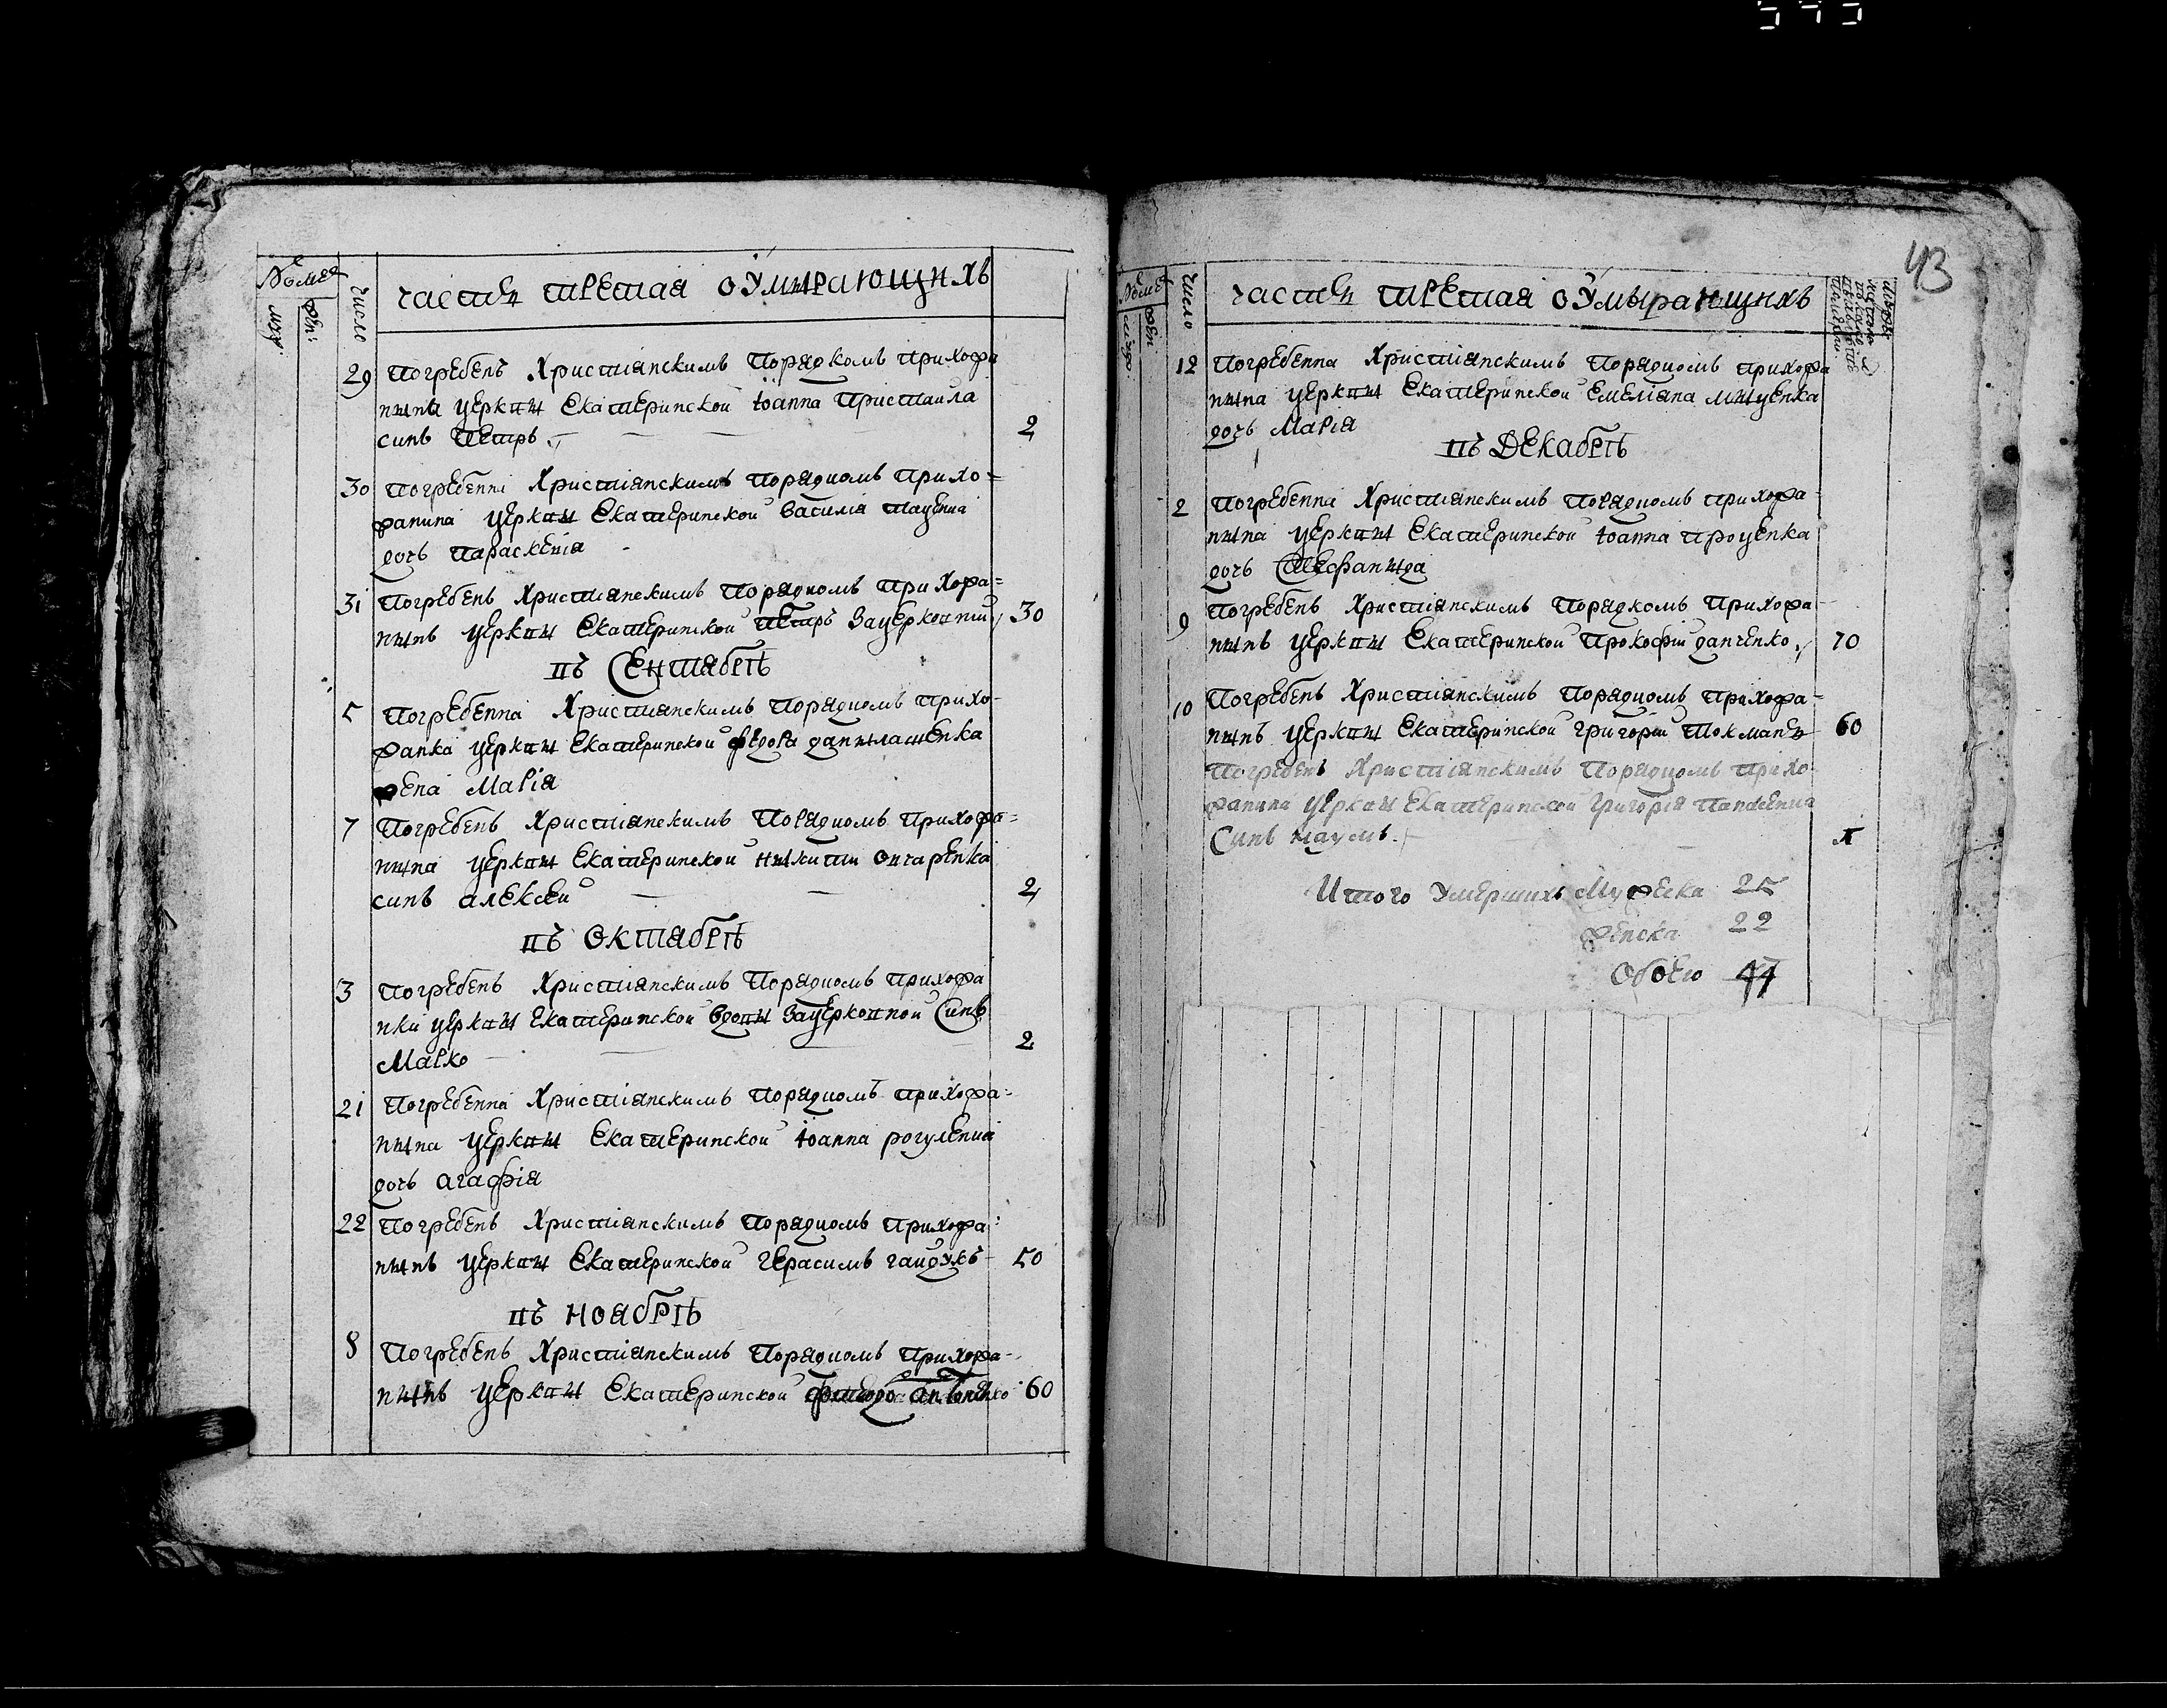 Номер
муж:
жен:
число
часть третая оумирающихъ
29 Погребенъ Христіанскимъ Порядкомъ прихожа
нина церкви Екатеринской Іоанна Пристаила
синъ Петръ
2
30 Погребенна Христіанскимъ порядкомъ прихо=
жанина церкви Екатеринской Василія
дочь Параскевія
31 Погребенъ Христіанскимъ порядкомъ прихожа=
нинъ церкви Екатеринской Петръ Зацерковний 30
въ Сентябрѣ
5 Погребенна Христіанскимъ порядкомъ прихо-
жанка церкви Екатеринской Федора данилашенка
жена Марія
7 Погребенъ Христіанскимъ порядкомъ прихожа=
нина церкви Екатеринской никити овчаренка
синъ алексей
2
въ октябрѣ
3 погребенъ Христіанскимъ порядкомъ прихожа
нки церкви Екатеринской вдови зацерковной Синъ
Марко
2
21 Погребенна Христіанскимъ порядкомъ прихожа=
нина церкви Екатеринской Іоанна рогуленка
дочь агафія
22 Погребенъ Христіанскимъ порядкомъ прихожа=
нинъ церкви Екатеринской герасимъ гайдукъ 50
въ ноябрѣ
8 Погребенъ Христіанскимъ порядкомъ прихожа-
нинъ церкви Екатеринской 60
43
Номер
число
часть третая оумирающихъ
12 Погребенна Христіанскимъ порядкомъ прихожа
нина церкви Екатеринской Емеліана мищенка
дочь Марія
въ Декабрѣ
2 Погребенна Христіанскимъ порядкомъ прихожа-
нина церкви Екатеринской Іоанна проценка
дочь Стефанида
9 Погребенъ Христіанскимъ порядкомъ прихожа-
нинъ церкви Екатеринской Прокофій данченко 70
10 Погребенъ Христіанскимъ порядкомъ прихожа=
нинъ церкви Екатеринской григорій Токмань 60
Погребенъ Христіанскимъ порядкомъ прихо
жанина церкви Екатеринской григорія
Синъ наумъ.
Итого умершихъ Мужеска 25
женска 22
Обоего 47